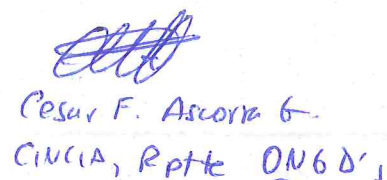 Cesar F. Ascorra G.
CINCIA, Rptte ONGD's